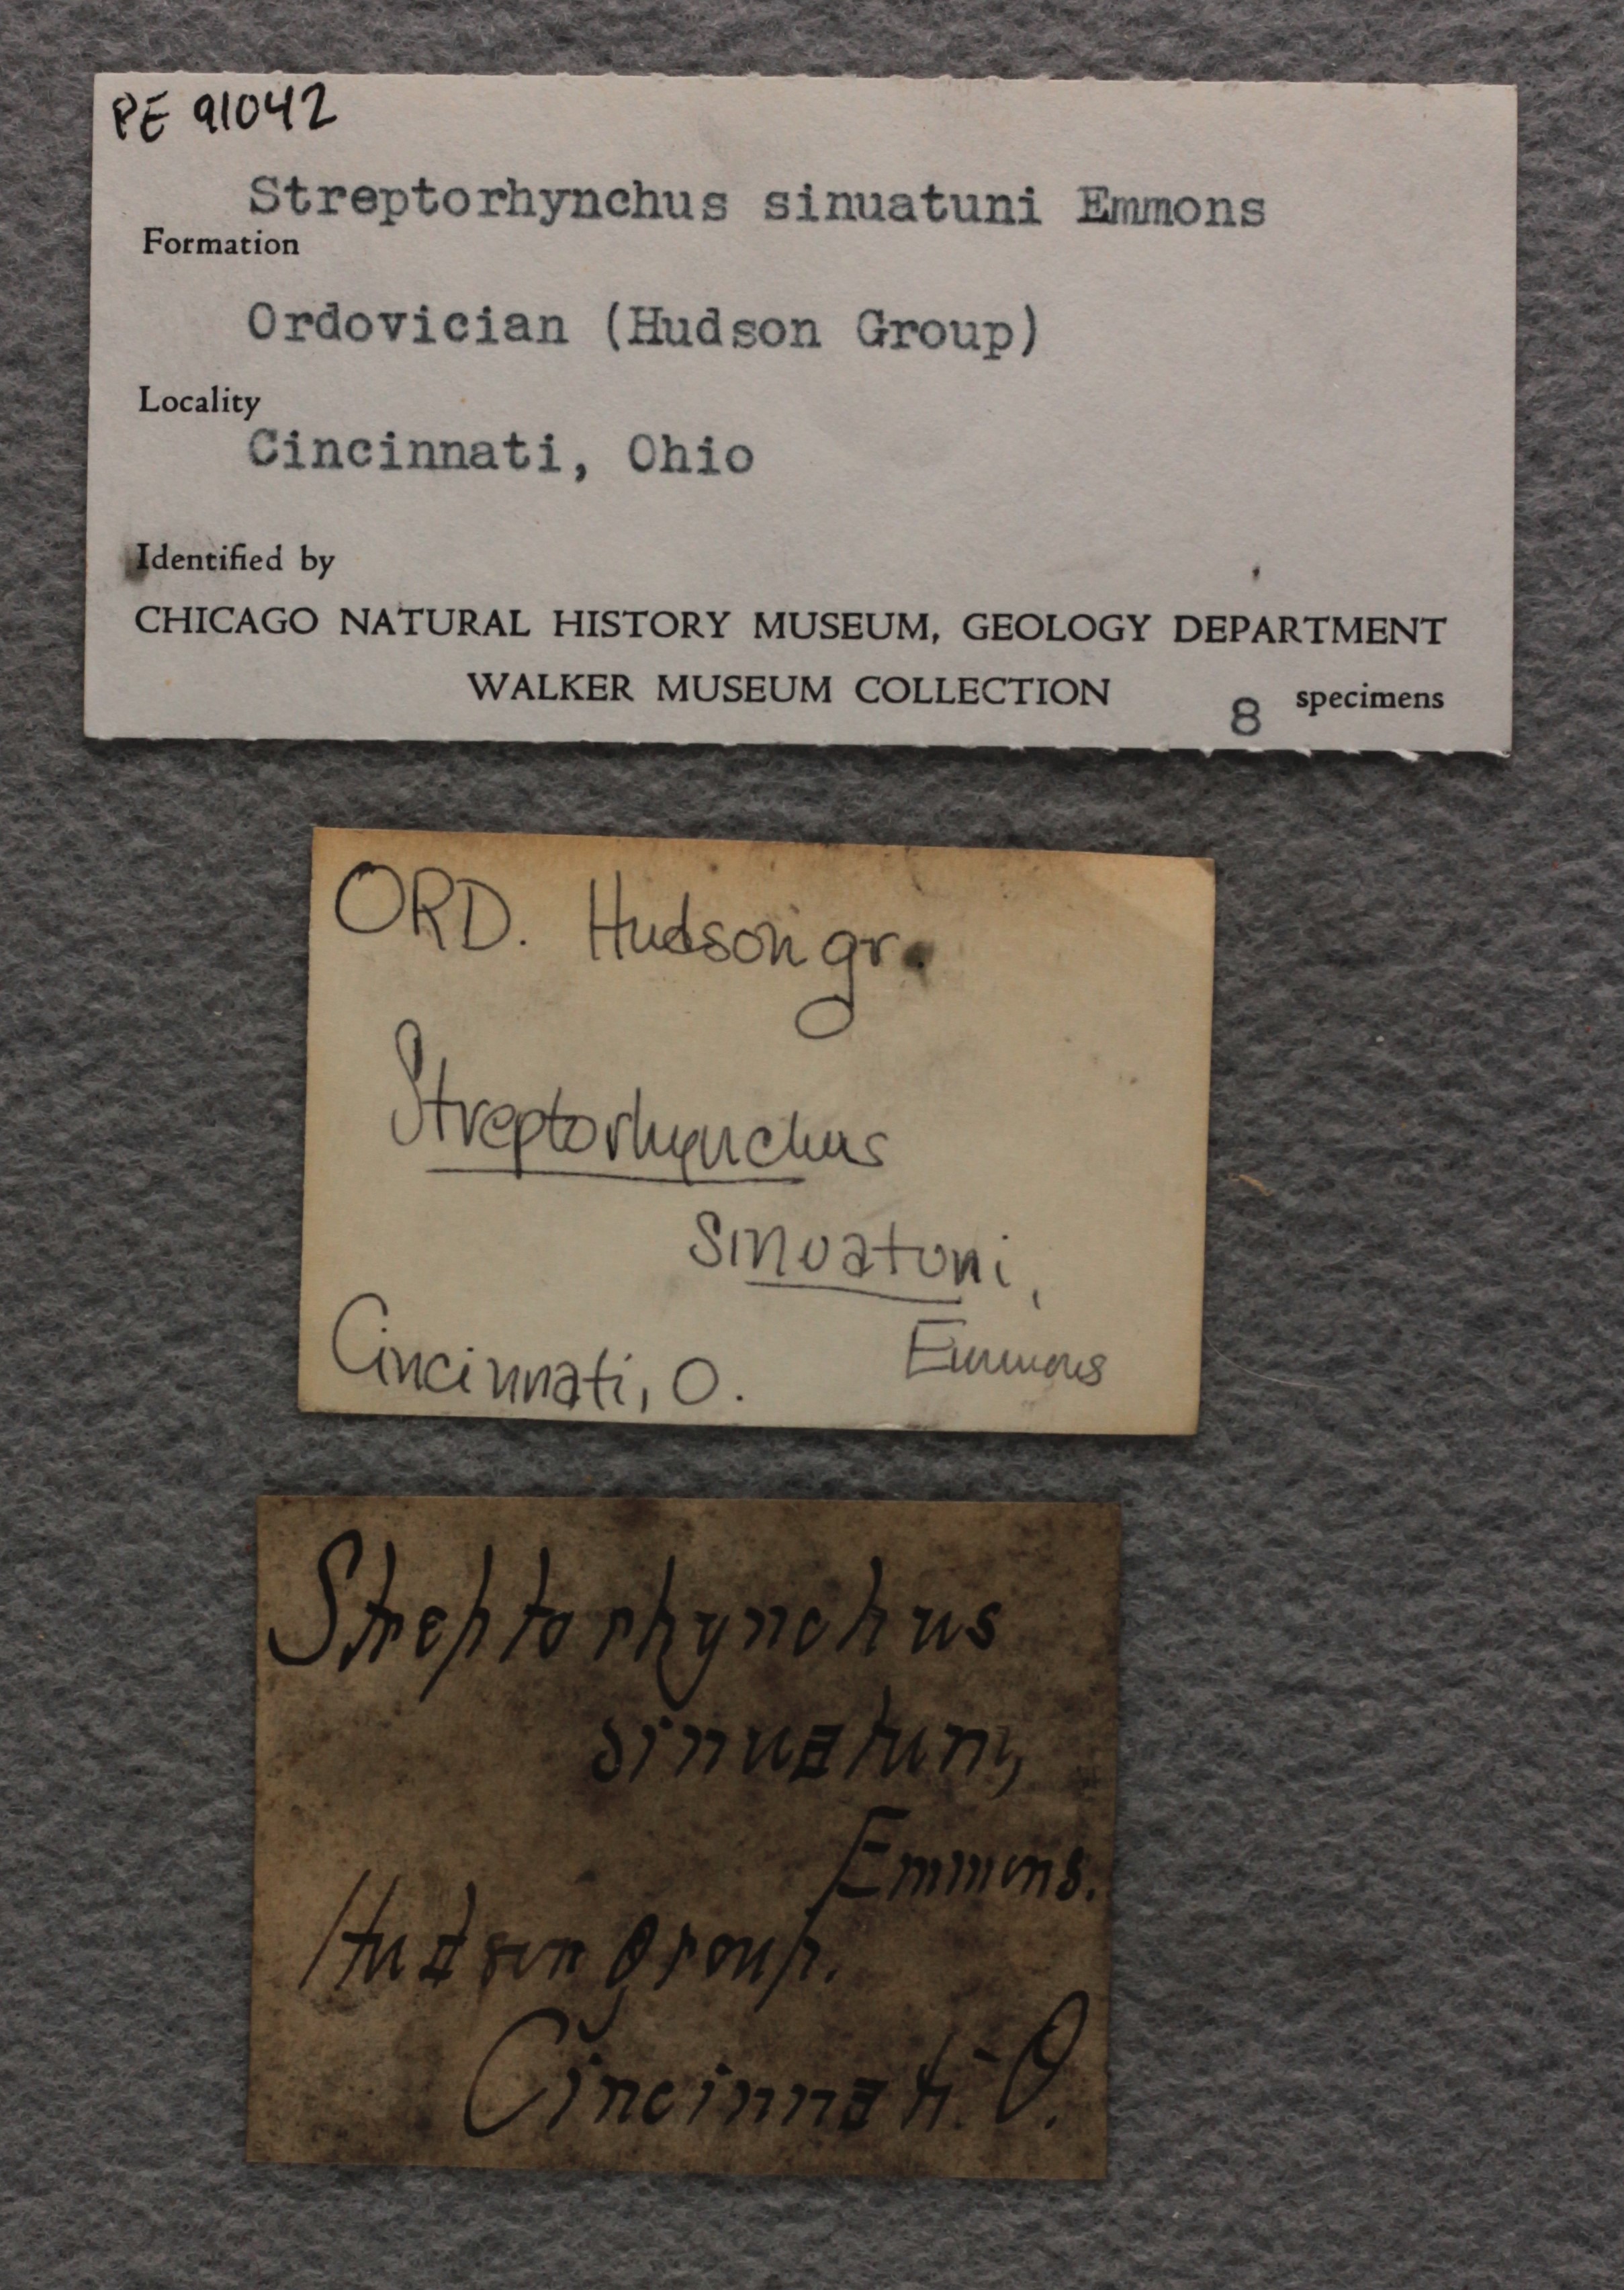 PE 91042
Streptorhynchus sinuatuni Emmons
Formation
Ordovician (Hudson Group)
Locality
Cincinnati, Ohio
Identified by
CHICAGO NATURAL HISTORY MUSEUM, GEOLOGY DEPARTMENT
WALKER MUSEUM COLLECTION 8 specimens
ORD. Hudson gr.
Streptorhynchus
sinuatuni,
Emmons
Cincinnati, O.
Streptorhynchus
sinuatum,
Emmons.
Hudson group.
Cincinnati. O.